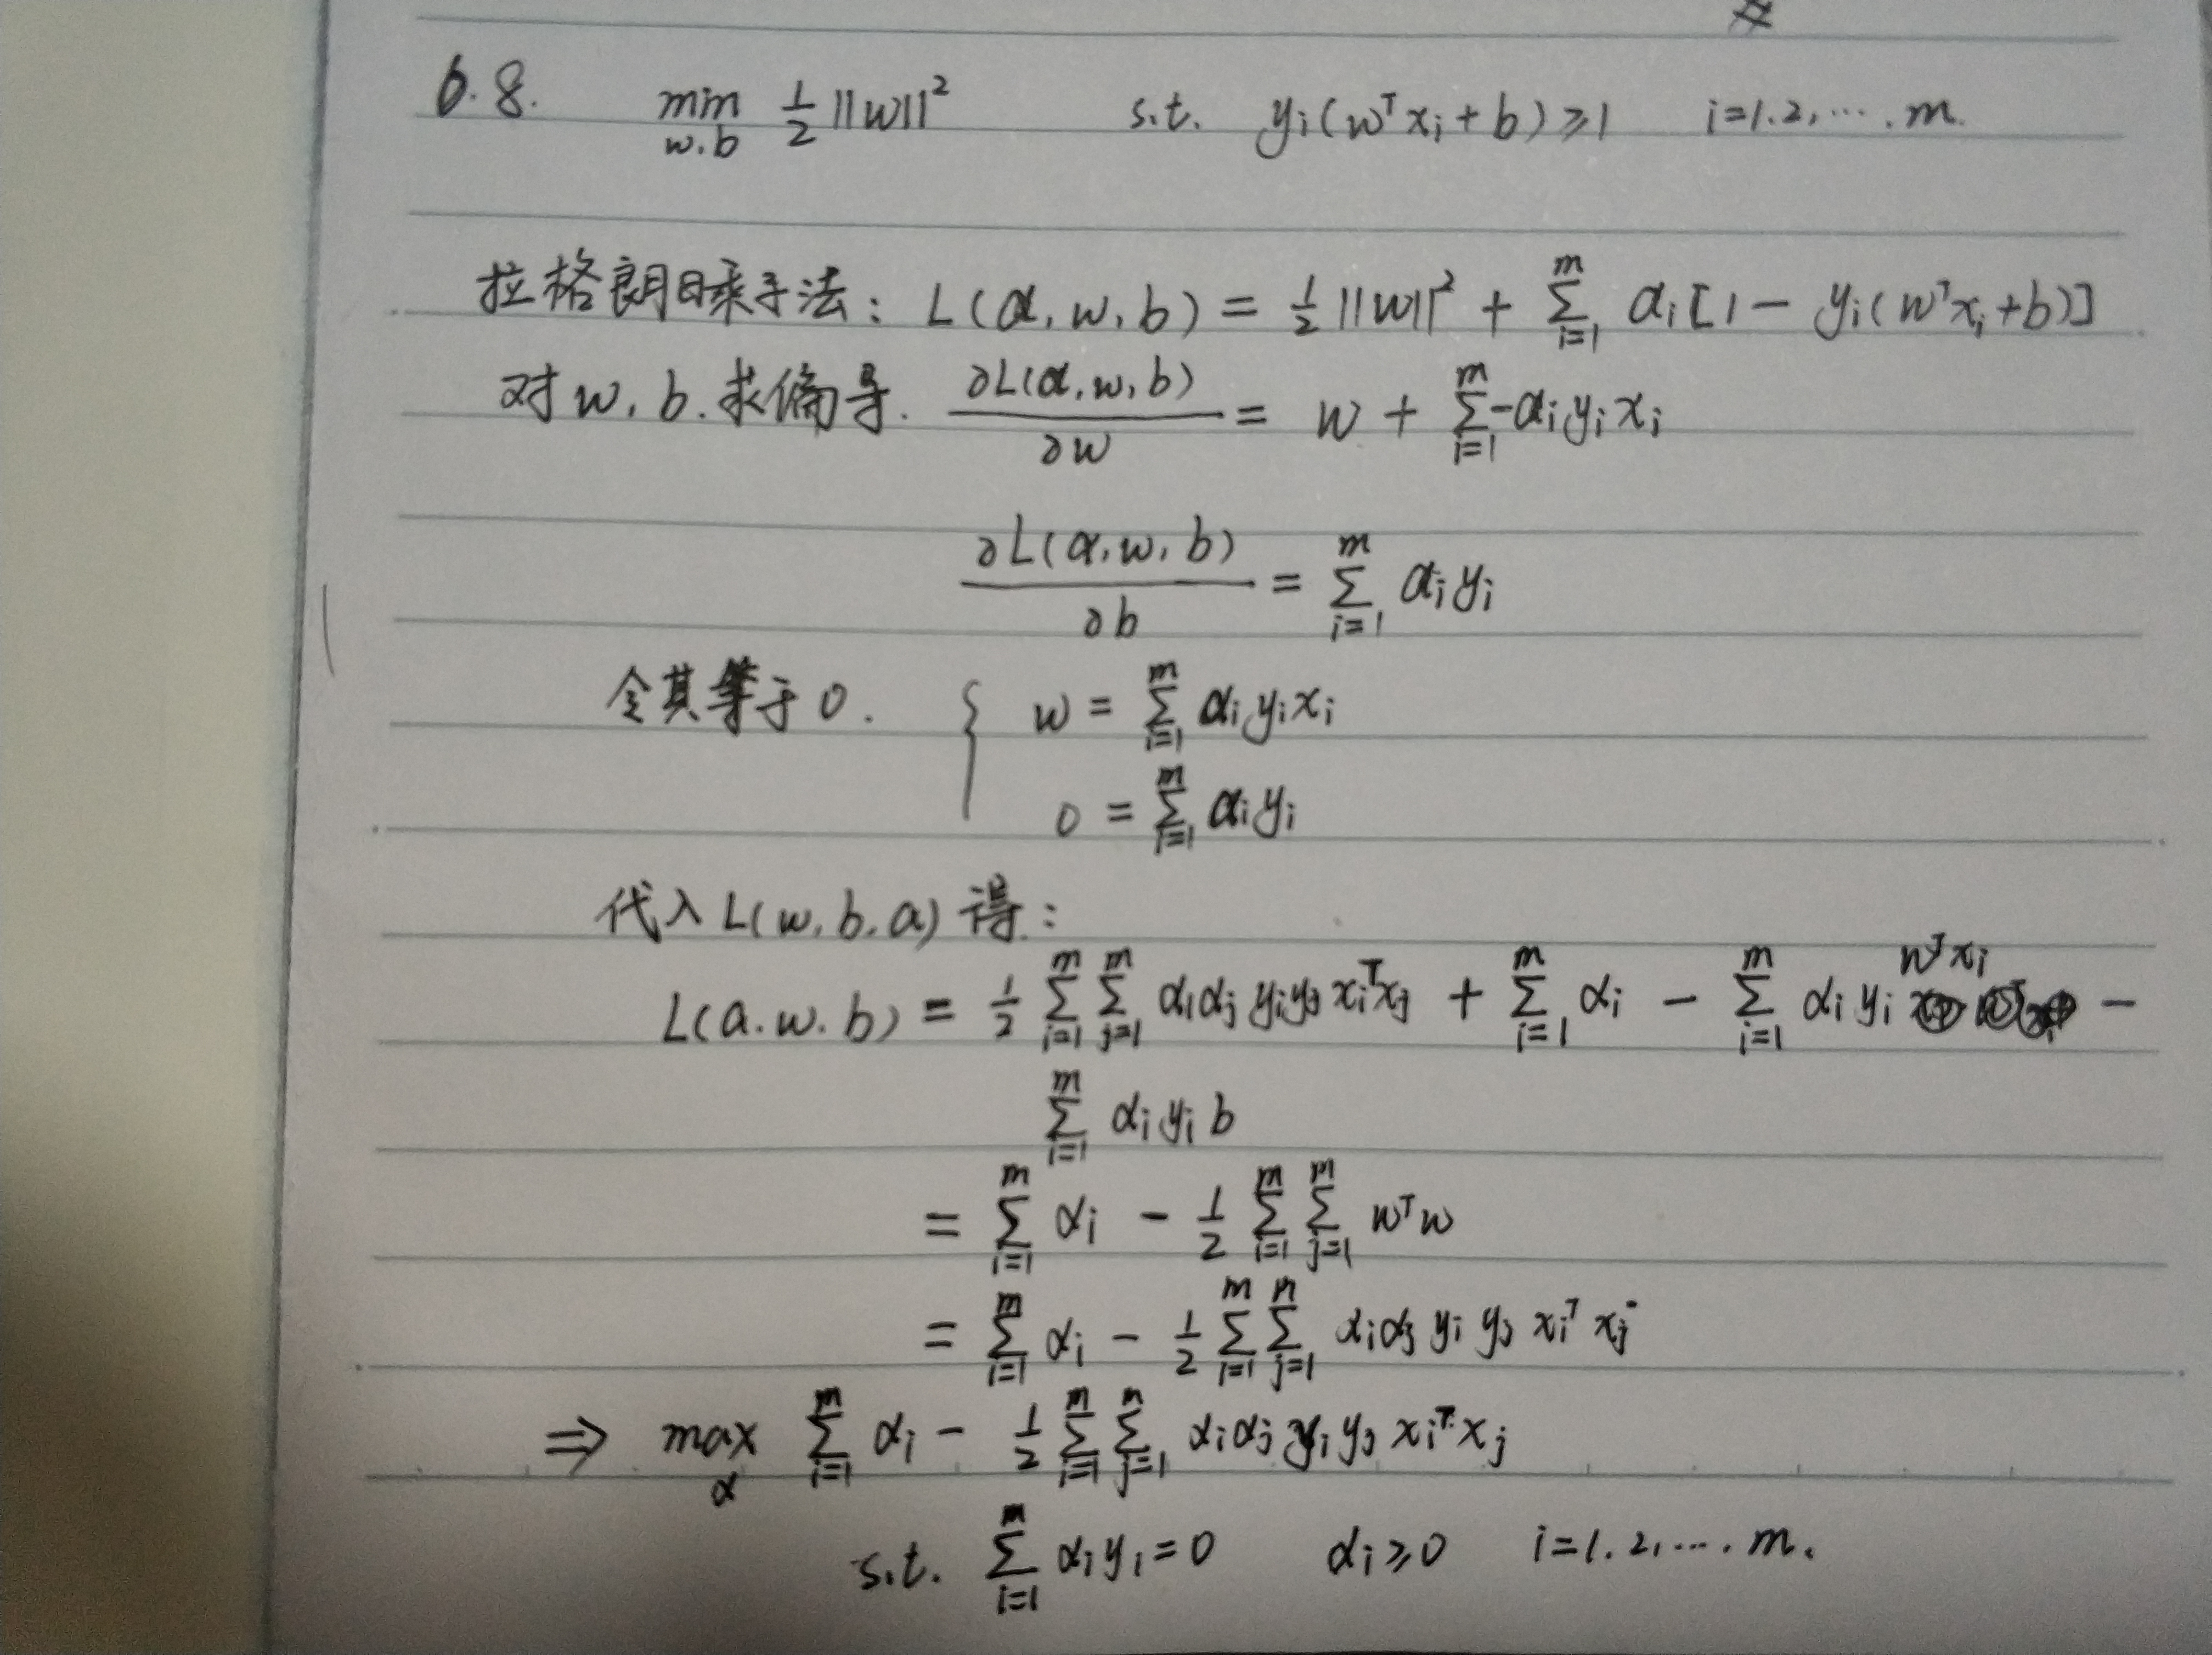 6.8. min w.b 1/2 ||w||² s.t. yi(wᵀxi+b)≥1 i=1.2,….m.
拉格朗日乘子法: L(α,w,b) = 1/2||w||² + Σ_{i=1}^{m} αi[1-yi(wᵀxi+b)]
对w,b.求偏导. ∂L(α,w,b)/∂w = w + Σ_{i=1}^{m} -αiyixi
∂L(α,w,b)/∂b = Σ_{i=1}^{m} αiyi
令其等于0. { w = Σ_{i=1}^{m} αiyixi
0 = Σ_{i=1}^{m} αiyi
代入L(w,b,a)得:
L(a.w.b) = 1/2 Σ_{i=1}^{m} Σ_{j=1}^{m} αiαjyiyjxiᵀxj + Σ_{i=1}^{m} αi - Σ_{i=1}^{m} αiyi wᵀxi -
Σ_{i=1}^{m} αiyib
= Σ_{i=1}^{m} αi - 1/2 Σ_{i=1}^{m} Σ_{j=1}^{m} wᵀw
= Σ_{i=1}^{m} αi - 1/2 Σ_{i=1}^{m} Σ_{j=1}^{n} αiαjyiyjxiᵀxj
⇒ max α Σ_{i=1}^{m} αi - 1/2 Σ_{i=1}^{m} Σ_{j=1}^{n} αiαjyiyjxiᵀxj
s.t. Σ_{i=1}^{m} αiyi=0 αi≥0 i=1.2,….m.